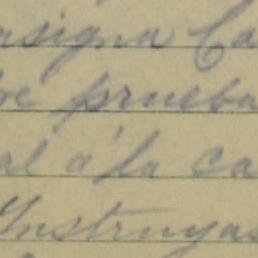 asigna Ca
re prueba
al á la ca
Instruyas